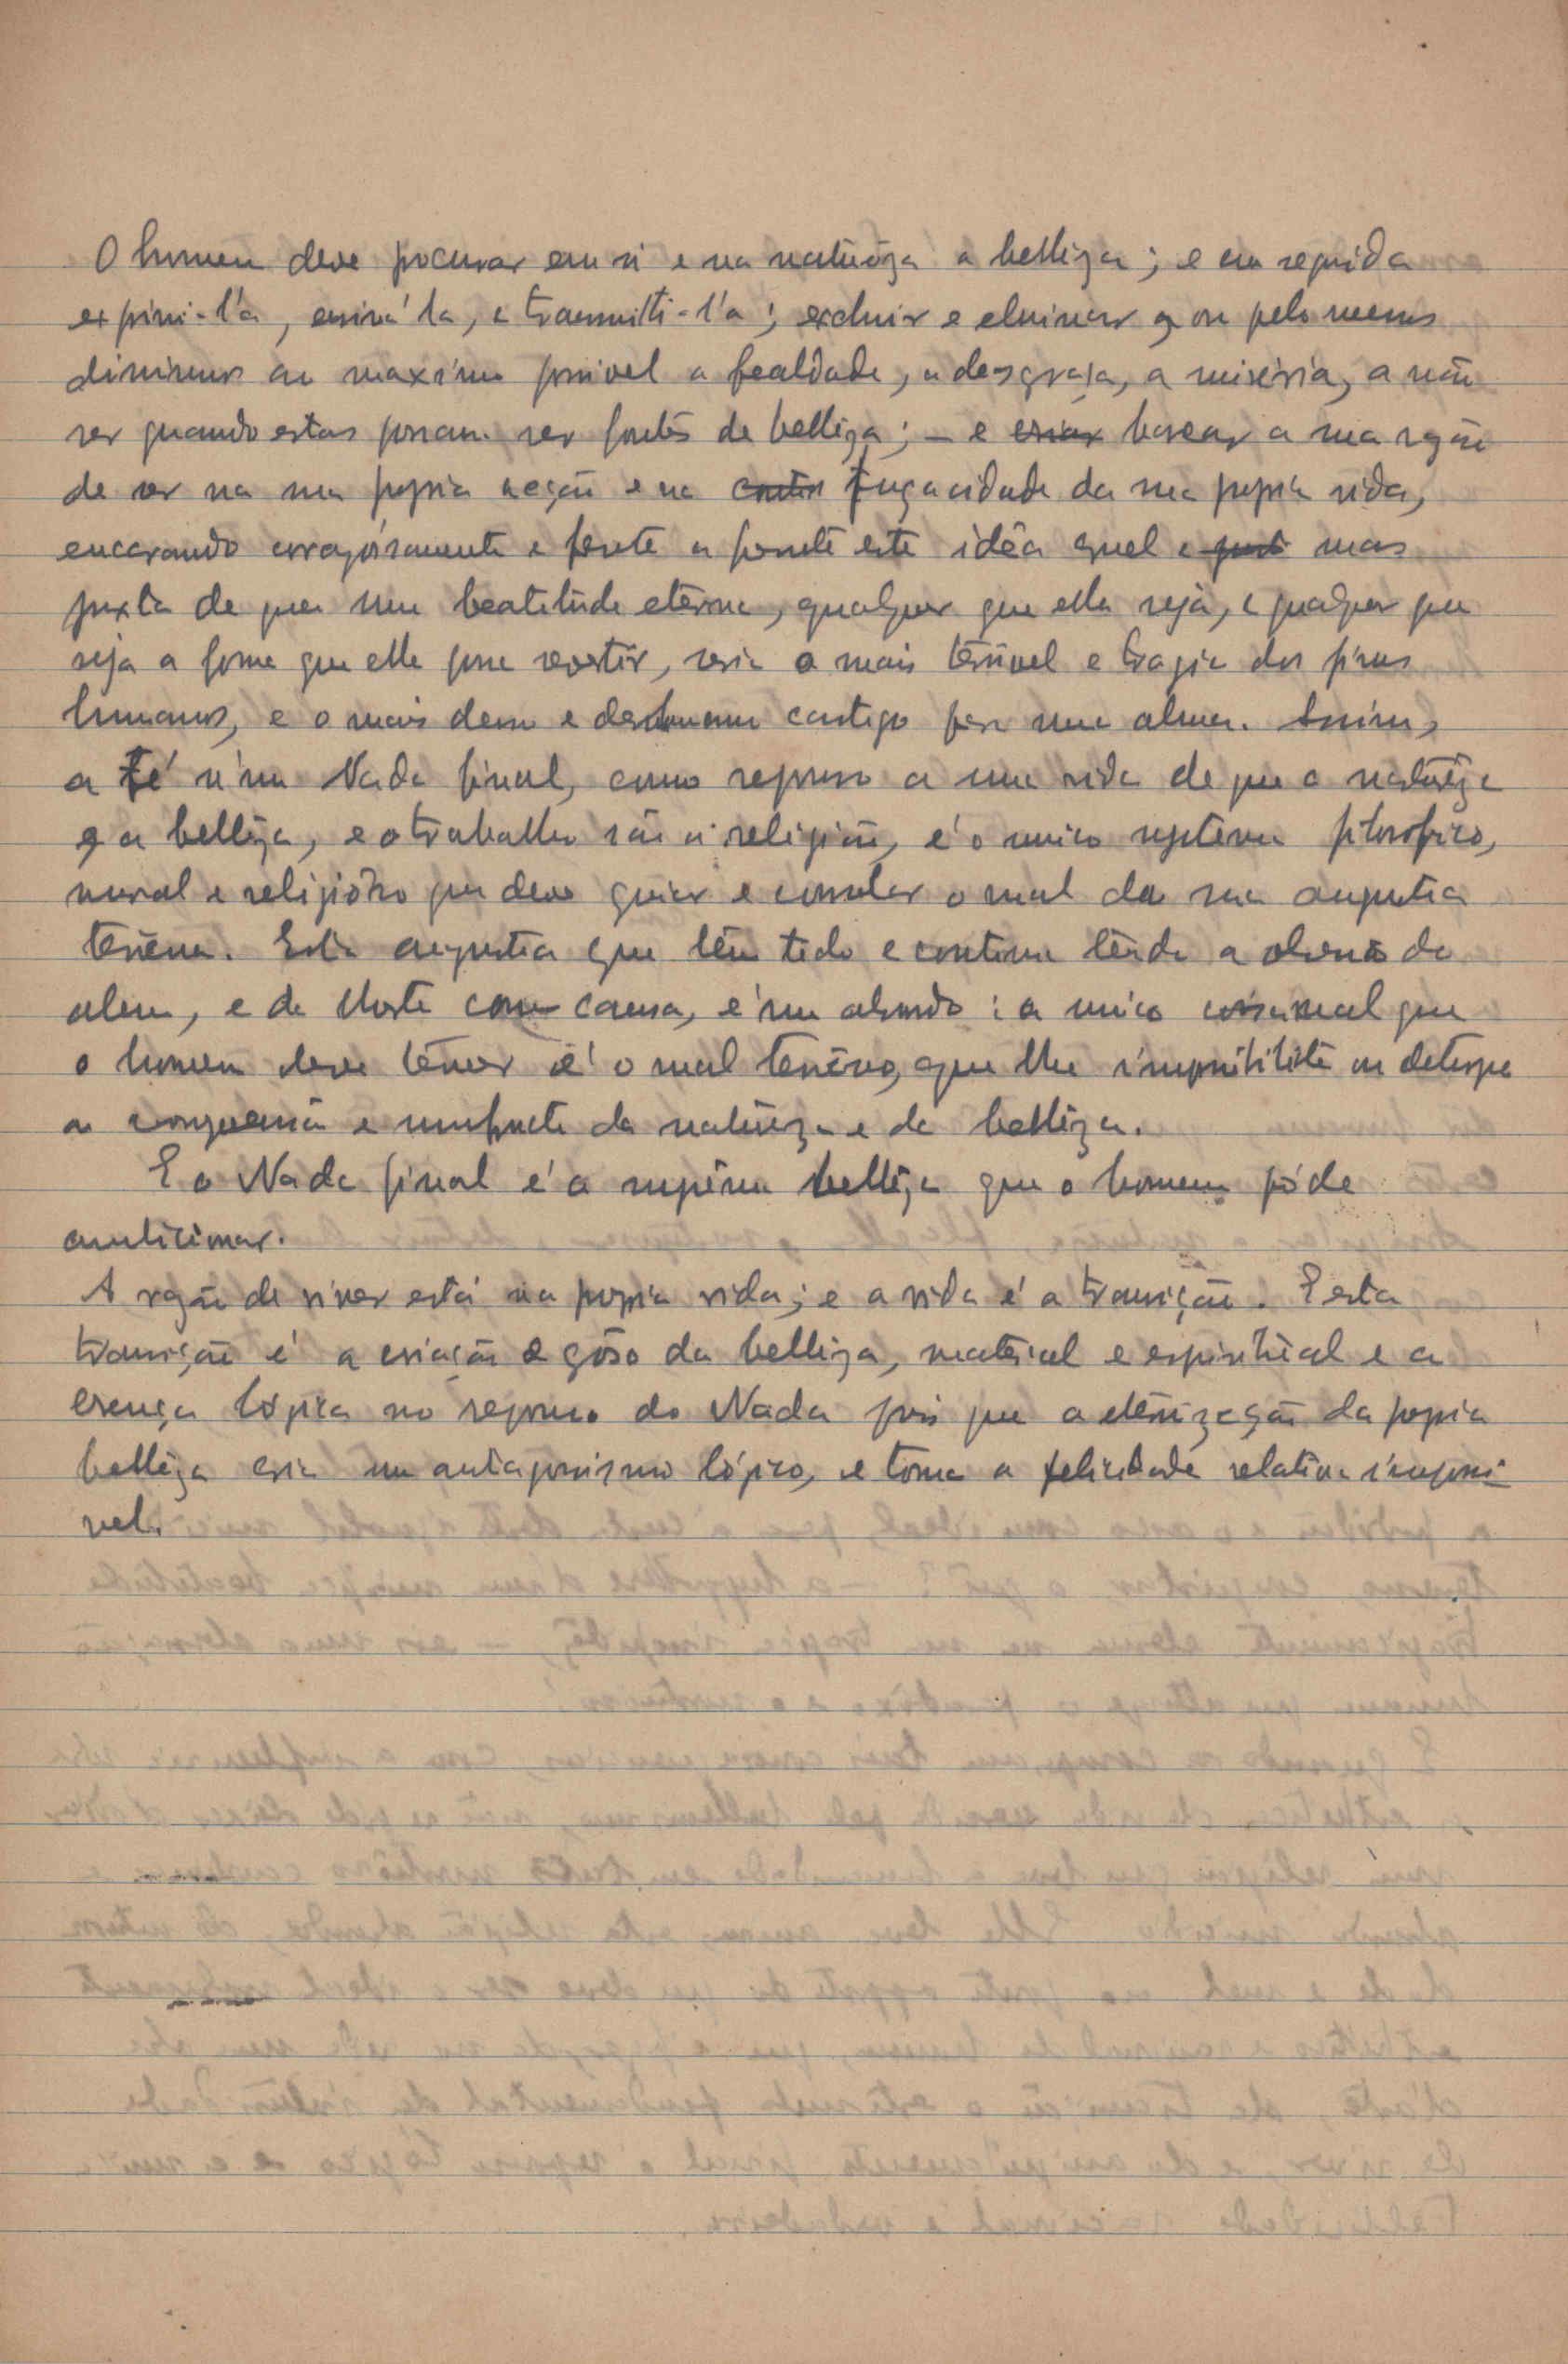 O homem deve procurar em si e na natureza a belleza; e em seguida
exprimi-l'a, ensiná'la, e transmitti-l'a; excluir e eliminar ou pelo menos
diminuir ao maximo possivel a fealdade, a desgraça, a miséria, a não
ser quando estas possam ser fontes de belleza; – e criar basear a sua razão
de ser na sua propria acção e na fugacidade da sua propria vida,
encarando corajosamente e frente a frente esta idêa cruel e mas
justa de que uma beatitude eterna, qualquer que ella seja, e qualquer que
seja a forma que ella possa revestir, seria o mais terrivel e tragico dos fins
humanos, e o mais deshumano castigo para uma alma. Assim,
a fé n'um Nada final, como repouso a uma vida de que a natureza
e a belleza, e o trabalho são a religião, é o unico systema filosofico,
moral e religioso que deve guiar e consolar o mal da sua angustia
terrena. Esta angustia que tem tido e continua tendo a do
alem, e da Morte como causa, é um absurdo: a unica coisa mal que
o homem deve temer é o mal terreno, que lhe impossibilite ou deturpe
a e usufructo da natureza e da belleza.
E o Nada final é a suprema belleza que o homem póde
ambicionar.
A razão de viver está na propria vida; e a vida é a transição. E esta
transição é a criação e gôso da belleza, material e espiritual e a
crença lógica no repouso do Nada pois que a eternização da propria
belleza cria um antagonismo lógico, e torna a felicidade relativa impossi-
vel.